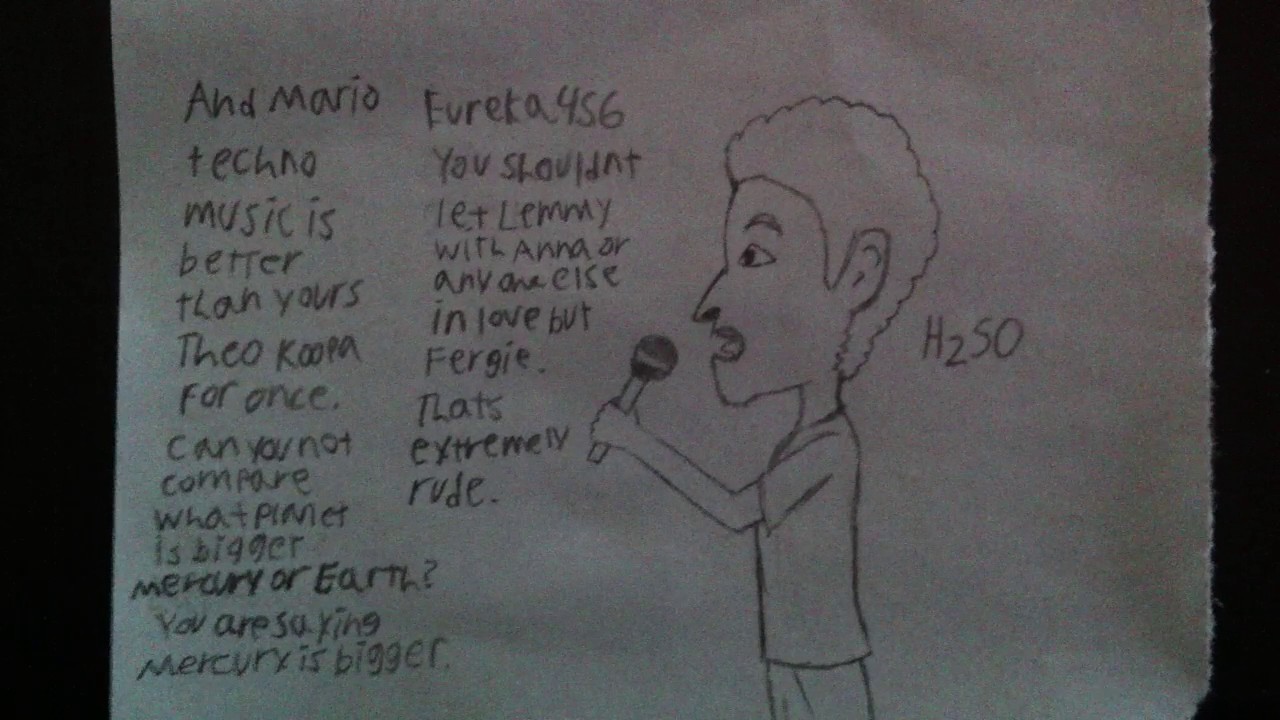 And Mario
techno
music is
better
than yours
Theo Koopa
For once.
Can you not
compare
what planet
is bigger
Mercury or Earth?
You are saying
Mercury is bigger.
Eureka456
You shouldnt
let Lemmy
with Anna or
anyone else
in love but
Fergie.
Thats
extremely
rude.
H2SO